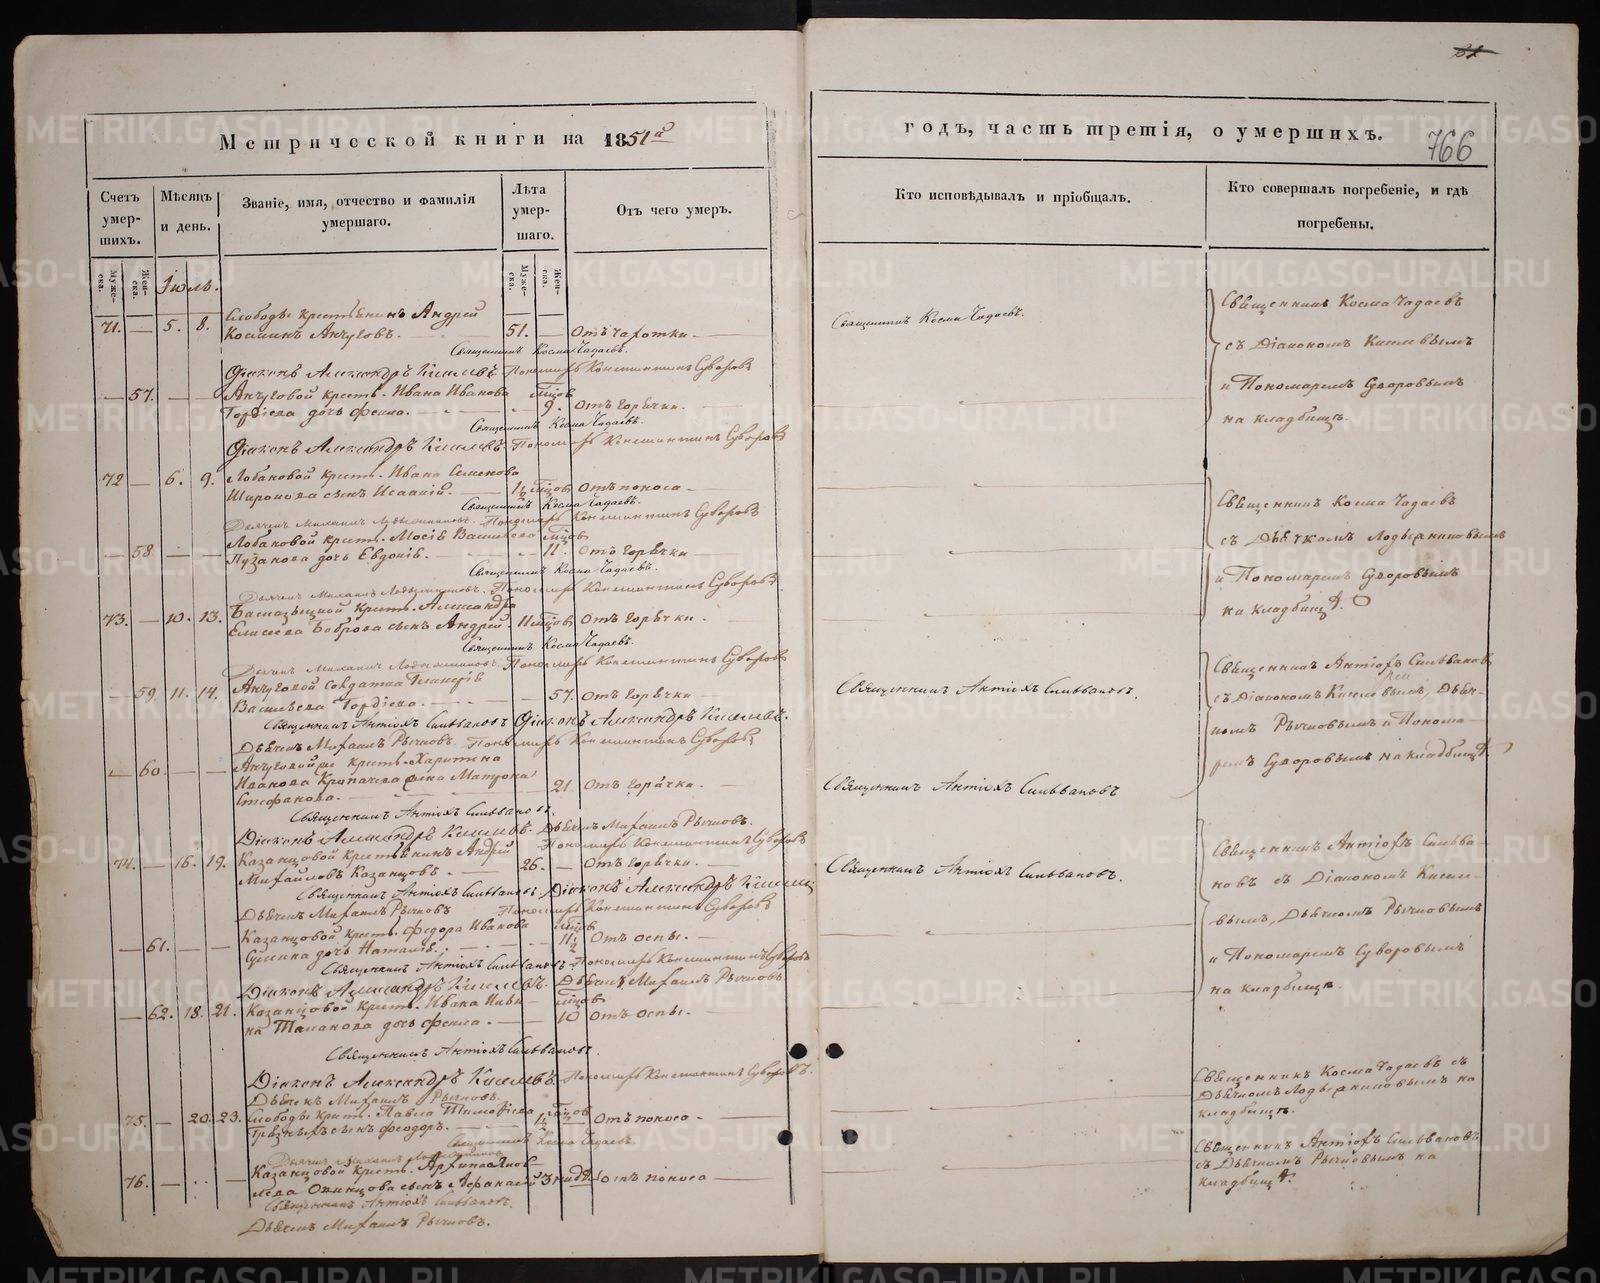 Метрической книги на 1851й
годъ, часть третія, о умершихъ.
766
Счетъ умер-шихъ.
Мѣсяцъ и день.
Званіе, имя, отчество и фамилія
умершаго.
Лѣта умер-шаго.
Отъ чего умеръ.
Кто исповѣдывалъ и пріобщалъ.
Кто совершалъ погребеніе, и гдѣ
погребены.
Муже-ска.
Жен-ска.
Муже-ска.
Жен-ска.
Іюль.
Слободы крестьянинъ Андрей
71. — 5. 8. Косминъ Анчуговъ. 51. — Отъ чахотки
Священникъ Косма Чадаевъ.
Священникъ Косма Чадаевъ.
Діаконъ Александръ Киселевъ Пономарь Константинъ Суворовъ
— 57. — — Анчуговой крест. Ивана Иванова мѣцов
Гордіева дочь Фекла. 9. Отъ горячки.
Священникъ Косма Чадаевъ.
Діаконъ Александръ Киселевъ Пономарь Константинъ Суворовъ
Священникъ Косма Чадаевъ
съ Діакономъ Киселевымъ
и Пономаремъ Суворовымъ
на кладбищѣ.
72 — 6. 9. Лобановой крест. Ивана Семенова
сынъ Исаакій. 1½ мѣцов Отъ поноса
Священникъ Косма Чадаевъ.
Дьячекъ Михаилъ Пономарь Константинъ Суворовъ
58 — — Лобановой крест. Мосіѣ Васильева мѣцов
Пузанова дочь Евдокія. 11. Отъ горячки
Священникъ Косма Чадаевъ.
Дьячекъ Михаилъ Пономарь Константинъ Суворовъ
Священникъ Косма Чадаевъ
съ Дьячкомъ
и Пономаремъ Суворовымъ
на кладбищѣ.
крест. Александра
73. — 10. 13. Елисеева Боброва сынъ Андрей. 11 мѣцов Отъ горячки.
Священникъ Косма Чадаевъ.
Дьячекъ Михаилъ Пономарь Константинъ Суворовъ
— 59. 11. 14. Анчуговой солдатка
Васильева Гордіева. 57. Отъ горячки
Священникъ Антіохъ Сильвановъ.
Священникъ Антіохъ Сильвановъ Діаконъ Александръ Киселевъ.
Дьячекъ Михаилъ Рычковъ. Пономарь Константинъ Суворовъ
— 60. — — Анчуговой же крест. Харитона
Иванова Кропачева жена Матрона
Стефанова. 21. Отъ горячки.
Священникъ Антіохъ Сильвановъ
Священникъ Антіохъ Сильвановъ.
Діаконъ Александръ Киселевъ. Дьячекъ Михаилъ Рычковъ.
Пономарь Константинъ Суворовъ
Священникъ Антіохъ Сильвановъ
съ Діакономъ Киселевымъ, Дьяч-
комъ Рычковымъ и Понома-
ремъ Суворовымъ на кладбищѣ
74. — 16. 19. Казанцовой крестьянинъ Андрей
Михайловъ Казанцовъ. 26. — Отъ горячки.
Священникъ Антіохъ Сильвановъ.
Священникъ Антіохъ Сильвановъ. Діаконъ Александръ Киселевъ
Дьячекъ Михаилъ Рычковъ Пономарь Константинъ Суворовъ
— 61. — — Казанцовой крест. Федора Иванова мѣцов
дочь Наталья. 11½ Отъ оспы.
Священникъ Антіохъ Сильвановъ Пономарь Константинъ Суворовъ
Діаконъ Александръ Киселевъ. Дьячекъ Михаилъ Рычковъ
Священникъ Антіохъ Сильва-
новъ съ Діакономъ Киселе-
вымъ, Дьячкомъ Рычковымъ
и Пономаремъ Суворовымъ
на кладбищѣ.
— 62. 18. 21. Казанцовой крест. Ивана Иванова мѣцов
дочь Фекла. 10 Отъ оспы.
Священникъ Антіохъ Сильвановъ.
Діаконъ Александръ Киселевъ. Пономарь Константинъ Суворовъ.
Дьячекъ Михаилъ Рычковъ.
75. — 20. 23. Слободы крест. Павла Тимофіева мѣцов
сынъ Феодоръ. 1½ Отъ поноса
Священникъ Косма Чадаевъ
Священникъ Косма Чадаевъ съ
Дьячкомъ на
кладбищѣ.
76. — Казанцовой крест. Архипа
сынъ Афанасій 3 нидѣ. Отъ поноса
Священникъ Антіохъ Сильвановъ.
Дьячекъ Михаилъ Рычковъ.
Священникъ Антіохъ Сильвановъ
съ Дьячкомъ Рычковымъ на
кладбищѣ.
METRIKI.GASO-URAL.RU